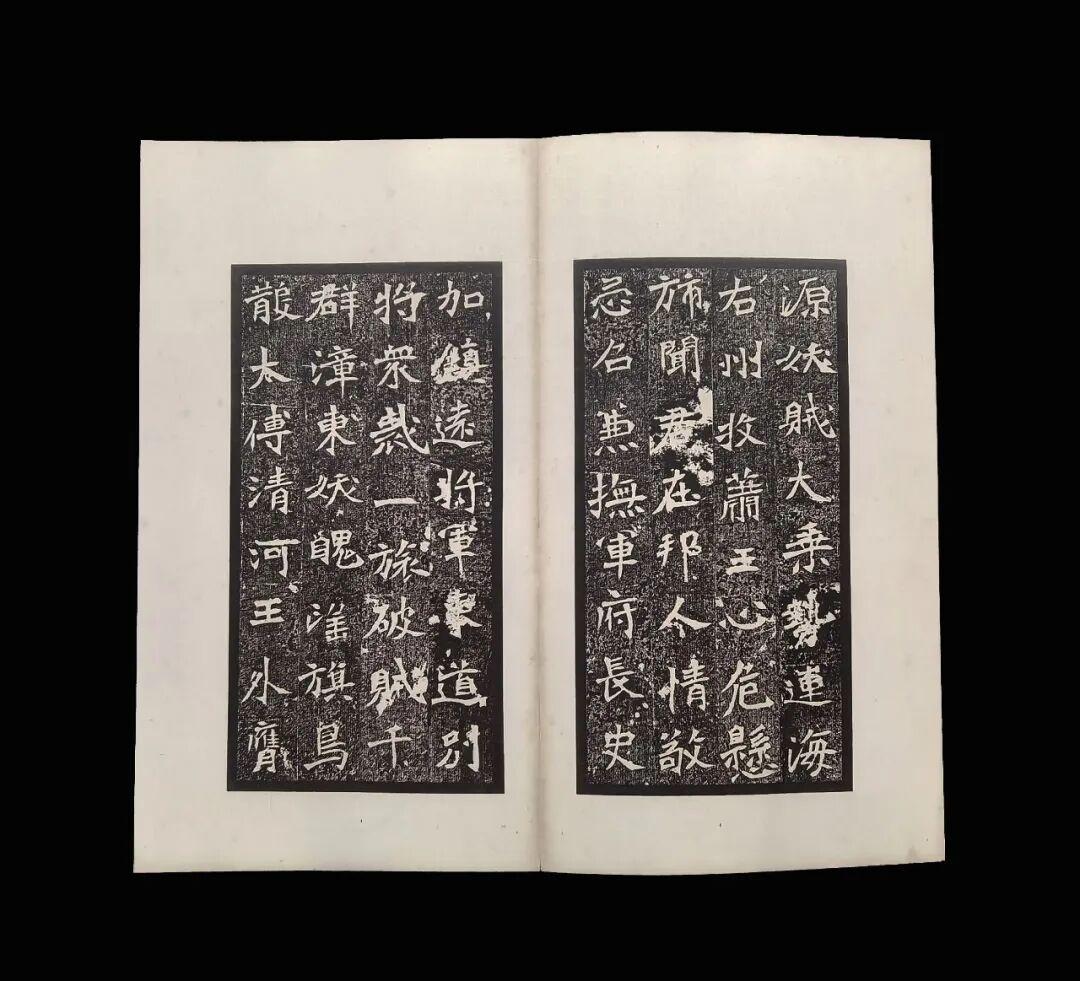 源妖賊大乘勢連海
右州牧蕭王心危懸
斾聞君在邦人情敬
忌召兼撫軍府長史
加鎮遠將軍東道別
將衆裁一旅破賊千
群漳東妖醜望旗鳥
散太傅清河王外膺